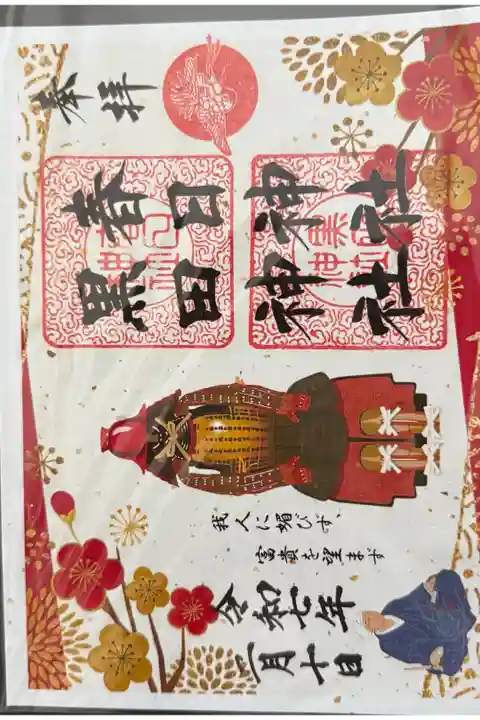 奉拝
春日神社
黒田神社
我人に媚びず、
富貴を望まず
令和七年
二月十日